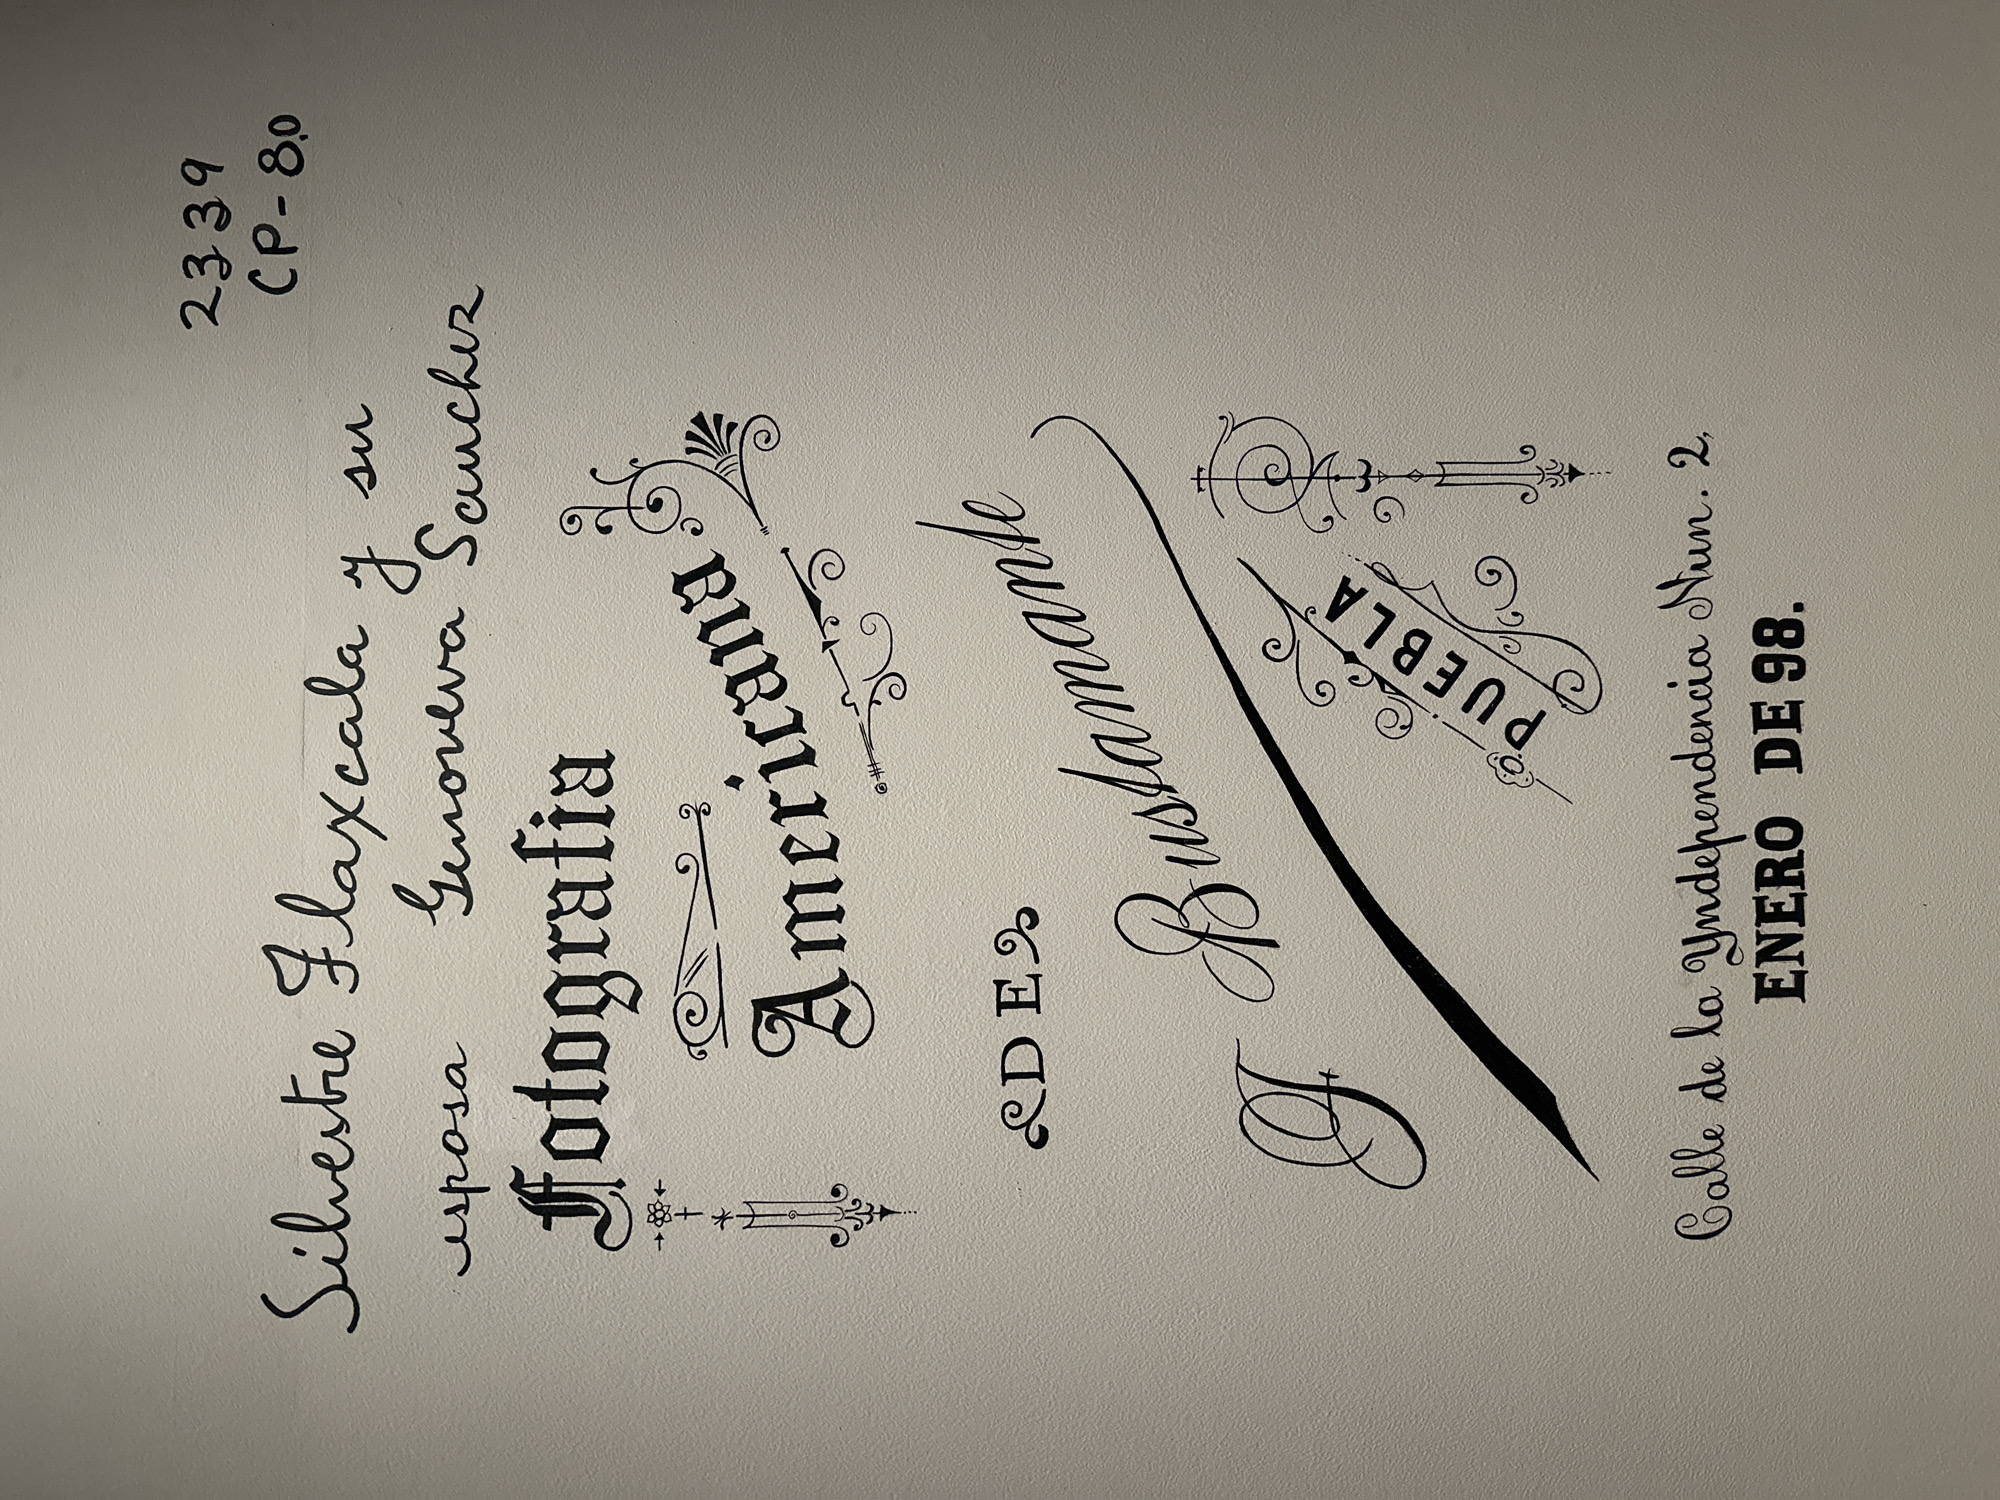 2339
CP-80
Silvestre Tlaxcala y su
esposa Genoveva Sanchez
Fotografia
Americana
DE
F Bustamante
PUEBLA
Calle de la Yndependencia Num. 2,
ENERO DE 98.